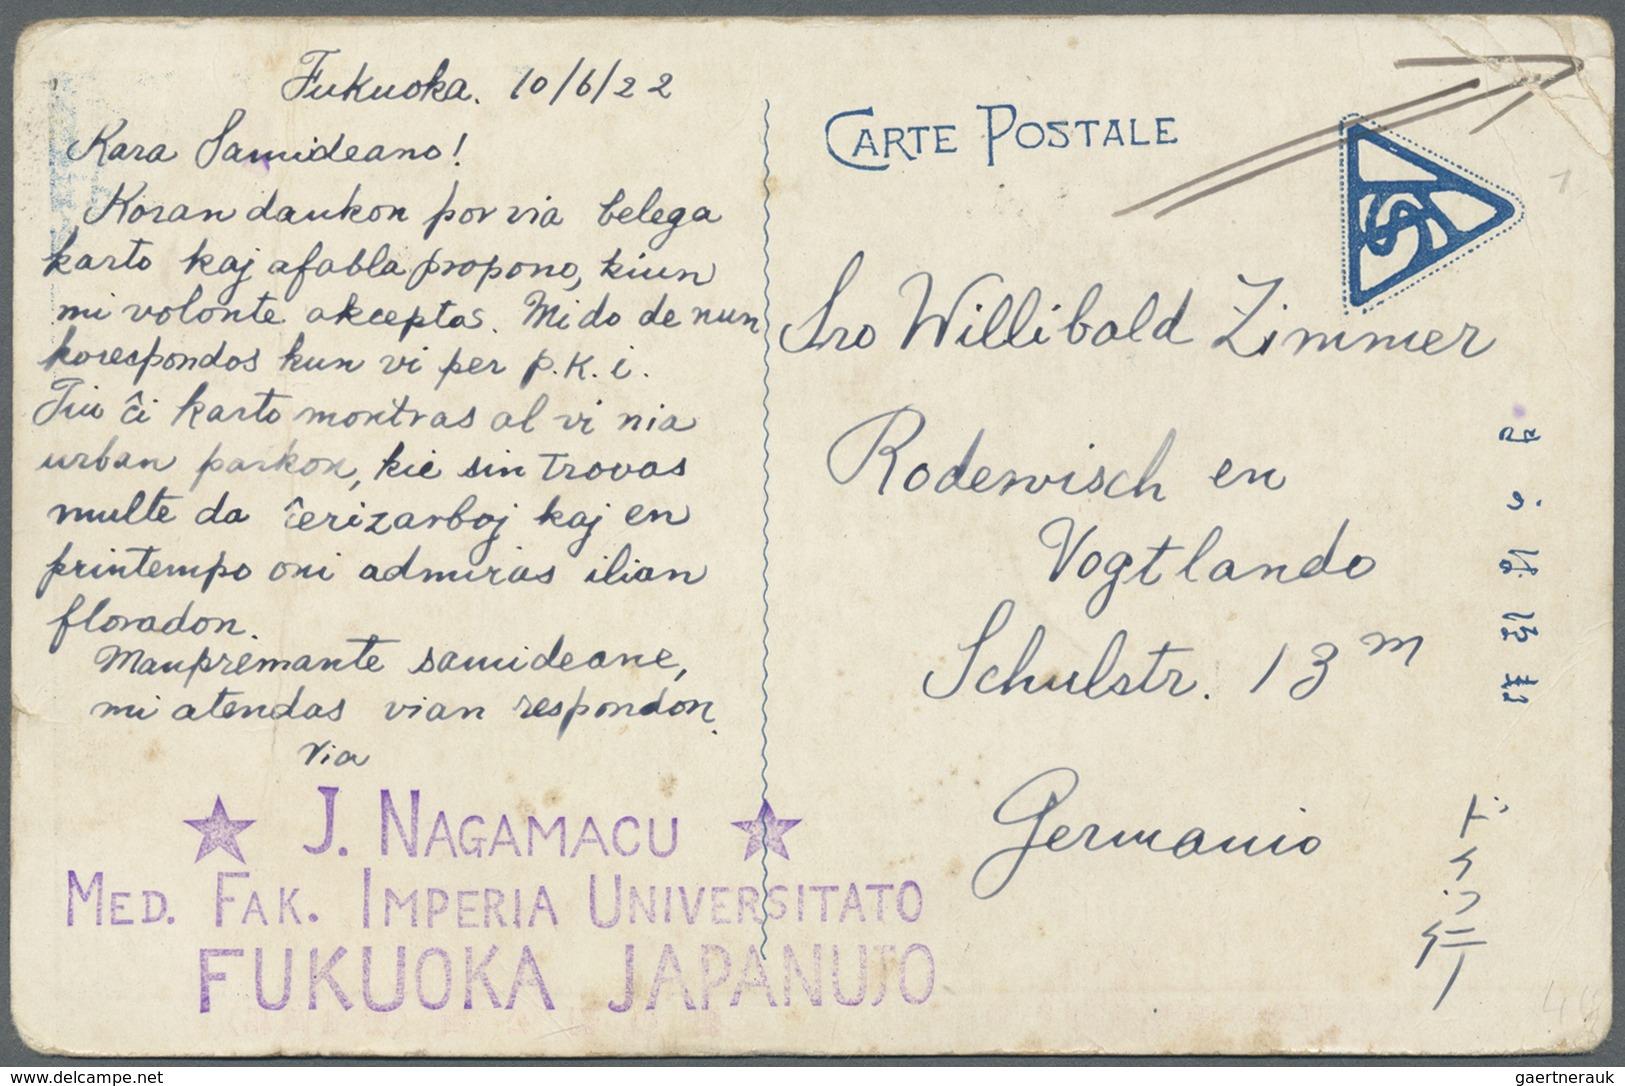 Fukuoka. 10/6/22
Kara Samideano!
Koran dankon por via belega
karto kaj afabla propono, kiun
mi volonte akceptas. Mi do de nun
korespondos kun vi per p.k. i.
Tiu ĉi karto montras al vi nia
urban parkon, kie sin trovas
multe da ĉerizarboj kaj en
printempo oni admiras ilian
floradon.
Manpremante samideane,
mi atendas vian respondon.
Via
J. NAGAMACU
MED. FAK. IMPERIA UNIVERSITATO
FUKUOKA JAPANUJO
CARTE POSTALE
Sro Willibald Zimmer
Rodewisch en
Vogtlando
Schulstr. 13 m
Germanio
ドイツ行
postcards delcampe
gaertnerauk